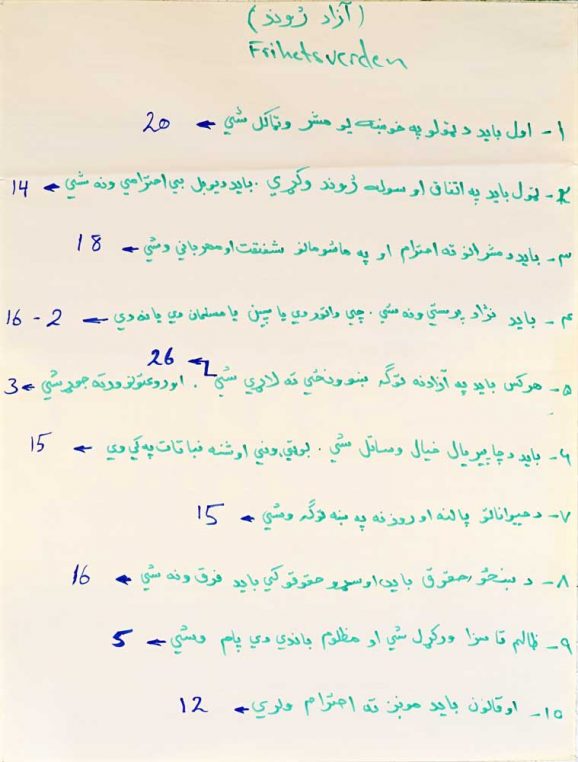 (آزاد ژوند)
Frihetsverden
۱- اول باید د ټولو په خوښه یو مشر وټاکل شي ← 20
۲- ټول باید په اتفاق او سوله ژوند وکړي . باید د یو بل بي احترامي ونه شي ← 14
۳- باید د مشرانو ته احترام او په ماشومانو شفقت او مهرباني وشي ← 18
۴- باید نژاد پرستي ونه شي . چي واتور وي یا سپین یا مسلمان وي یا نه وي ← 2 - 16
← 26
۵- هرکس باید په آزادنه توګه ښوونځي ته لاړي شي . او روغتونونه ورته جوړ شي ← 3
۶- باید د چاپیریال خیال وساتل شي . بوټي، وني او شنه نباتات پکي وي ← 15
۷- د حیواناتو پالنه او روزنه په ښه توګه وشي ← 15
۸- د ښځو حقوق باید، او سړو حقوقو کي باید فرق ونه شي ← 16
۹- ظالم ته سزا ورکړل شي او مظلوم باندي دي پام وشي ← 5
۱۰- او قانون باید مونږ ته احترام ولري ← 12